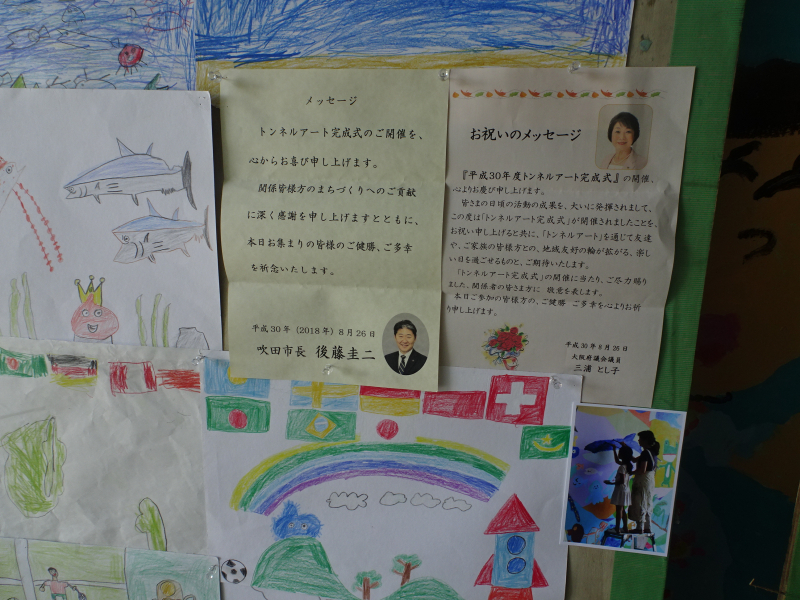 メッセージ
トンネルアート完成式のご開催を、
心からお喜び申し上げます。
関係皆様方のまちづくりへのご貢献
に深く感謝を申し上げますとともに、
本日お集まりの皆様のご健勝、ご多幸
を祈念いたします。
平成30年（2018年）8月26日
吹田市長 後藤圭二
お祝いのメッセージ
『平成30年度トンネルアート完成式』の開催、
心よりお慶び申し上げます。
皆さまの日頃の活動の成果を、大いに発揮されまして、
この度は「トンネルアート完成式」が開催されましたことを、
お祝い申し上げると共に、「トンネルアート」を通じて友達
や、ご家族の皆様方との、地域友好の輪が拡がる、楽し
い日を過ごせるものと、ご期待いたします。
「トンネルアート完成式」の開催に当たり、ご尽力賜り
ました、関係者の皆さま方に 敬意を表します。
本日ご参加の皆様方の、ご健勝 ご多幸を心よりお祈
り申し上げます。
平成30年8月26日
大阪府議会議員
三浦 とし子